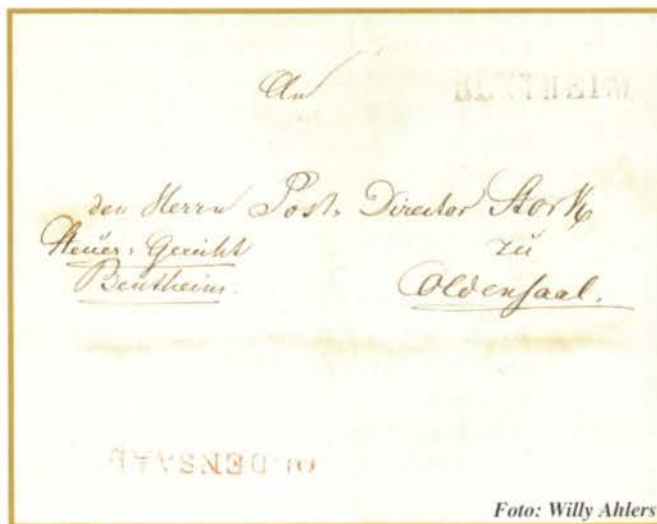 An
BENTHEIM
den Herrn Post-Director Stork
Steuer-Gericht zu
Bentheim. Oldensaal.
OLDENSAAL
Foto: Willy Ahlers